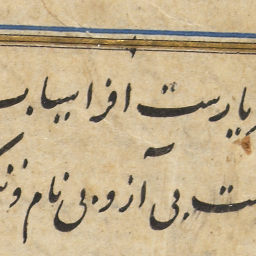 یارست افراسیاب
بی آز و بی نام و ننگ